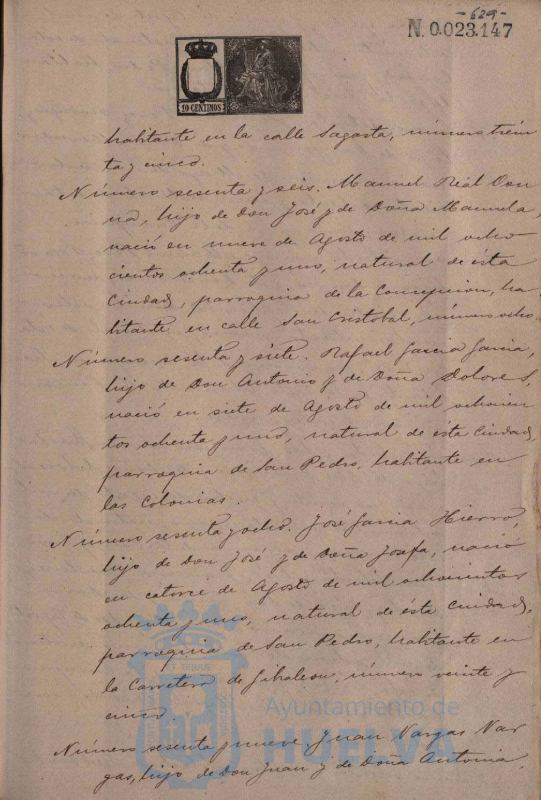 -629-
N.0.023.147
10 CENTIMOS
habitante en la calle Sagasta, número trein
ta y cinco.
Número sesenta y seis. Manuel Real Don
na, hijo de Don José y de Doña Manuela,
nació en nueve de Agosto de mil ocho
cientos ochenta y uno, natural de ésta
Ciudad, parroquia de la Concepcion, ha
bitante en calle San Cristobal, número ocho.
Número sesenta y siete. Rafael Garcia Garcia,
hijo de Don Antonio y de Doña Dolores,
nació en siete de Agosto de mil ochocien
tos ochenta y uno, natural de ésta Ciudad,
parroquia de San Pedro, habitante en
las Colonias.
Número sesenta y ocho. José Garcia Hierro,
hijo de Don José y de Doña Josefa, nació
en catorce de Agosto de mil ochocientos
ochenta y uno, natural de ésta Ciudad,
parroquia de San Pedro, habitante en
la Carretera de Gibraleon, número veinte y
cinco
Ayuntamiento de
HUELVA
Número sesenta y nueve. Juan Vargas Var
gas, hijo de Don Juan y de Doña Antonia,